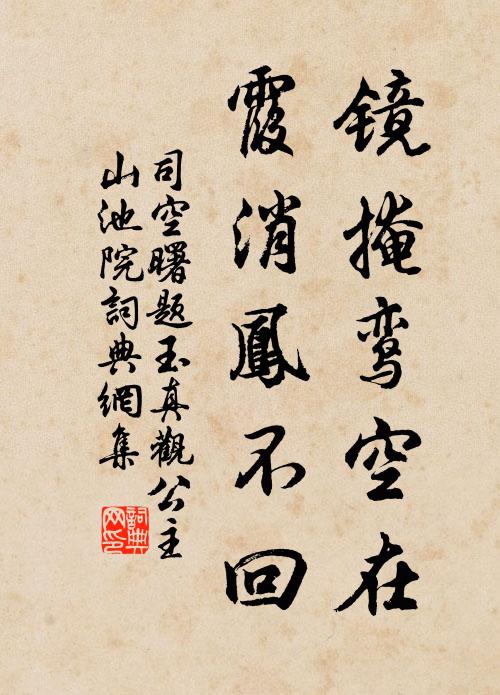 镜掩鸾空在
霞消鳳不回
司空曙题玉真觀公主
山池院詞典網集
詞典
网印